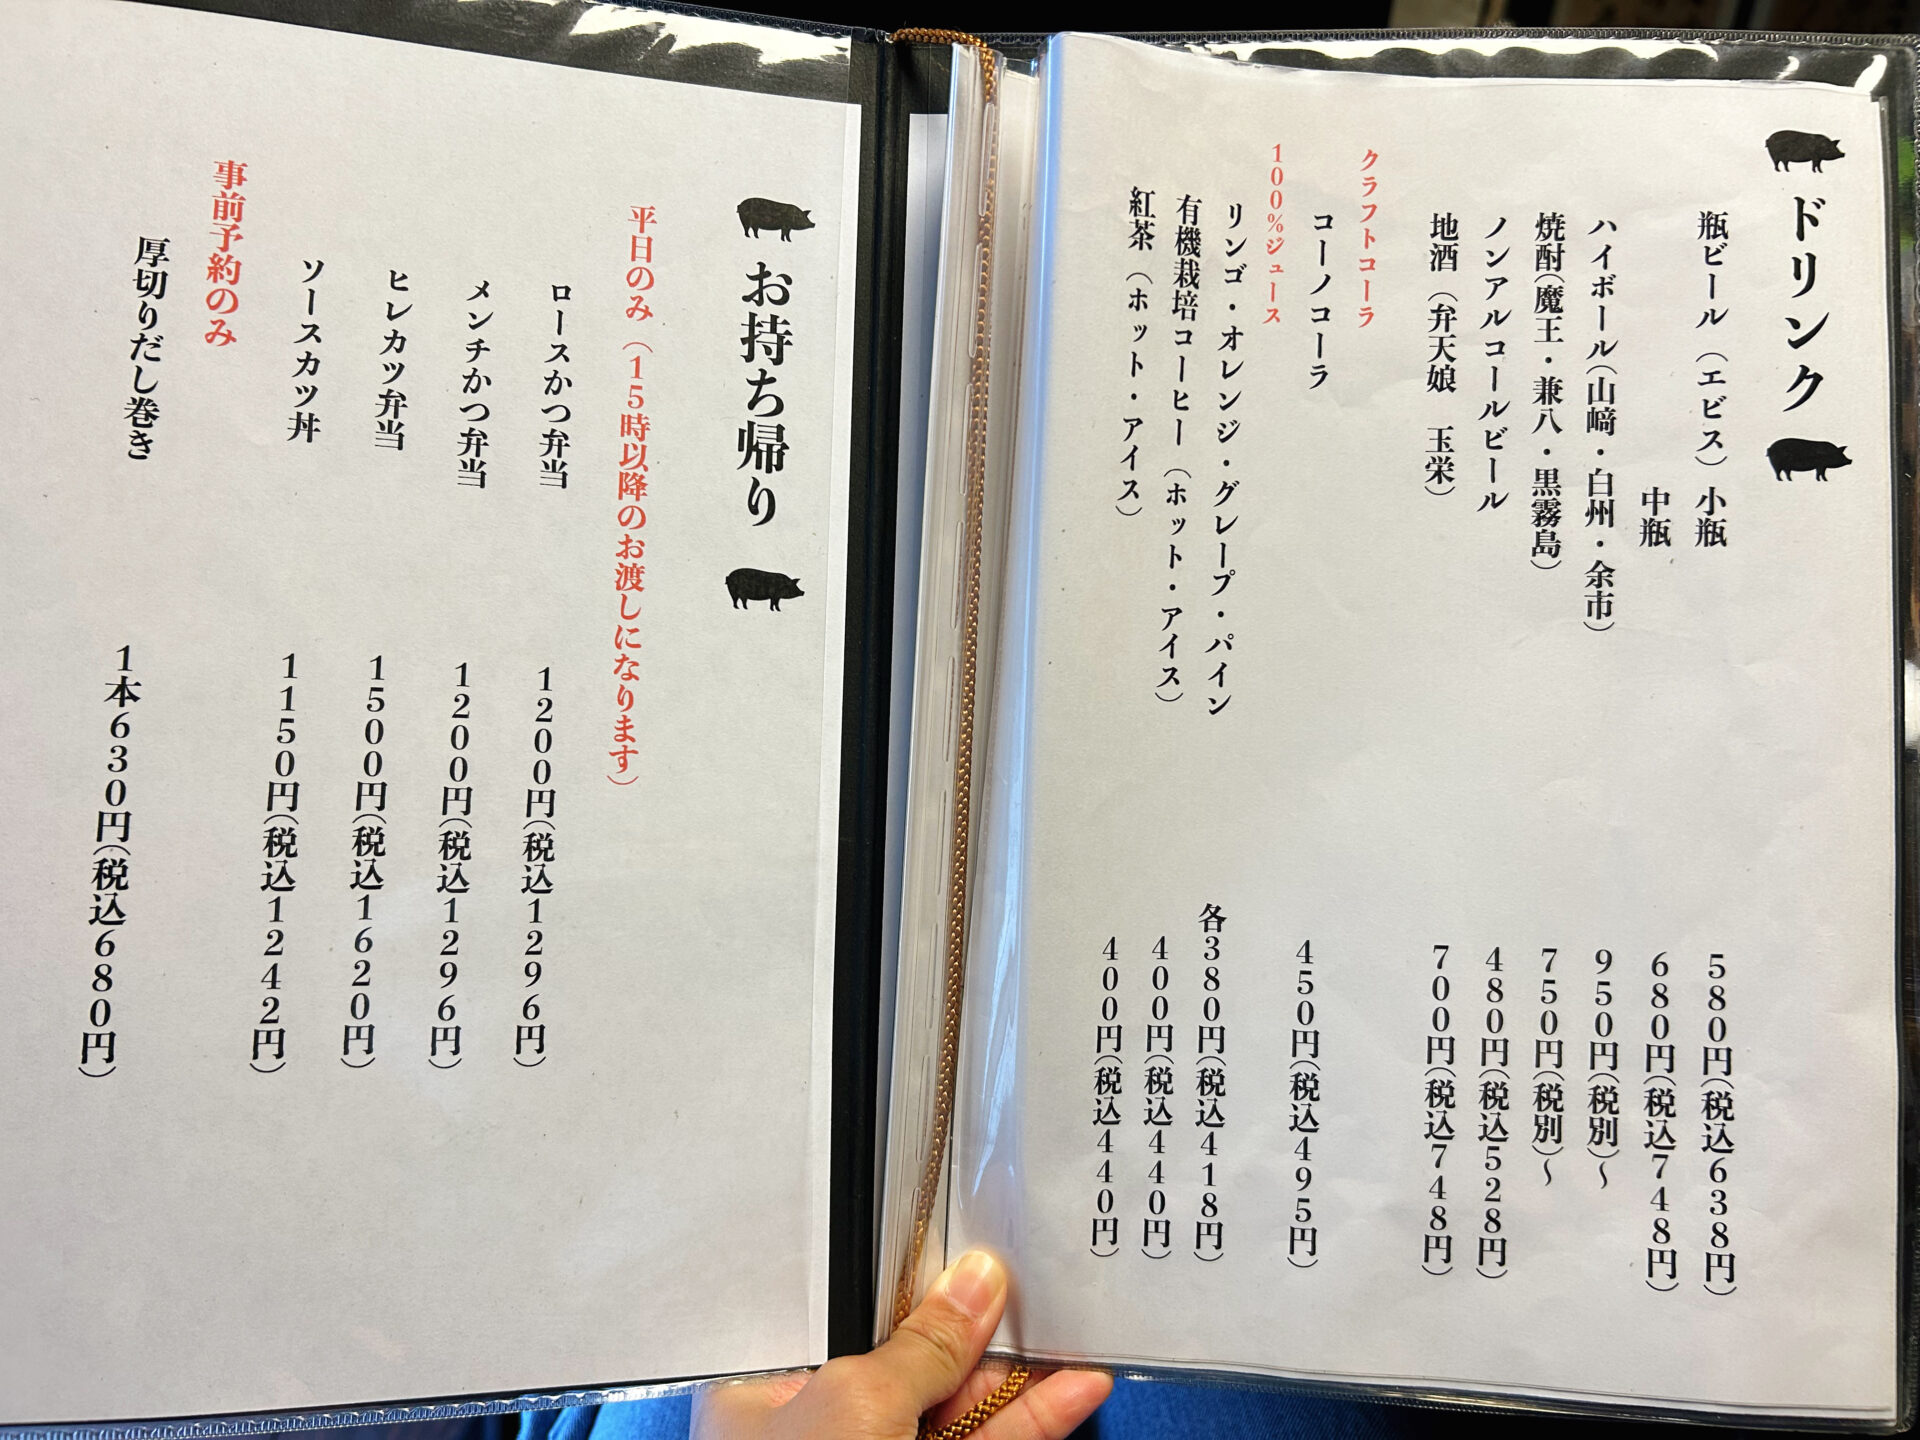 ドリンク
瓶ビール（エビス）小瓶 580円（税込638円）
中瓶 680円（税込748円）
ハイボール（山﨑・白州・余市） 950円（税別）～
焼酎（魔王・兼八・黒霧島） 750円（税別）～
ノンアルコールビール 480円（税込528円）
地酒（弁天娘　玉栄） 700円（税込748円）
クラフトコーラ
コーノコーラ 450円（税込495円）
100%ジュース
リンゴ・オレンジ・グレープ・パイン 各380円（税込418円）
有機栽培コーヒー（ホット・アイス） 400円（税込440円）
紅茶（ホット・アイス） 400円（税込440円）
お持ち帰り
平日のみ（15時以降のお渡しになります）
ロースかつ弁当 1200円（税込1296円）
メンチかつ弁当 1200円（税込1296円）
ヒレカツ弁当 1500円（税込1620円）
ソースカツ丼 1150円（税込1242円）
事前予約のみ
厚切りだし巻き 1本630円（税込680円）